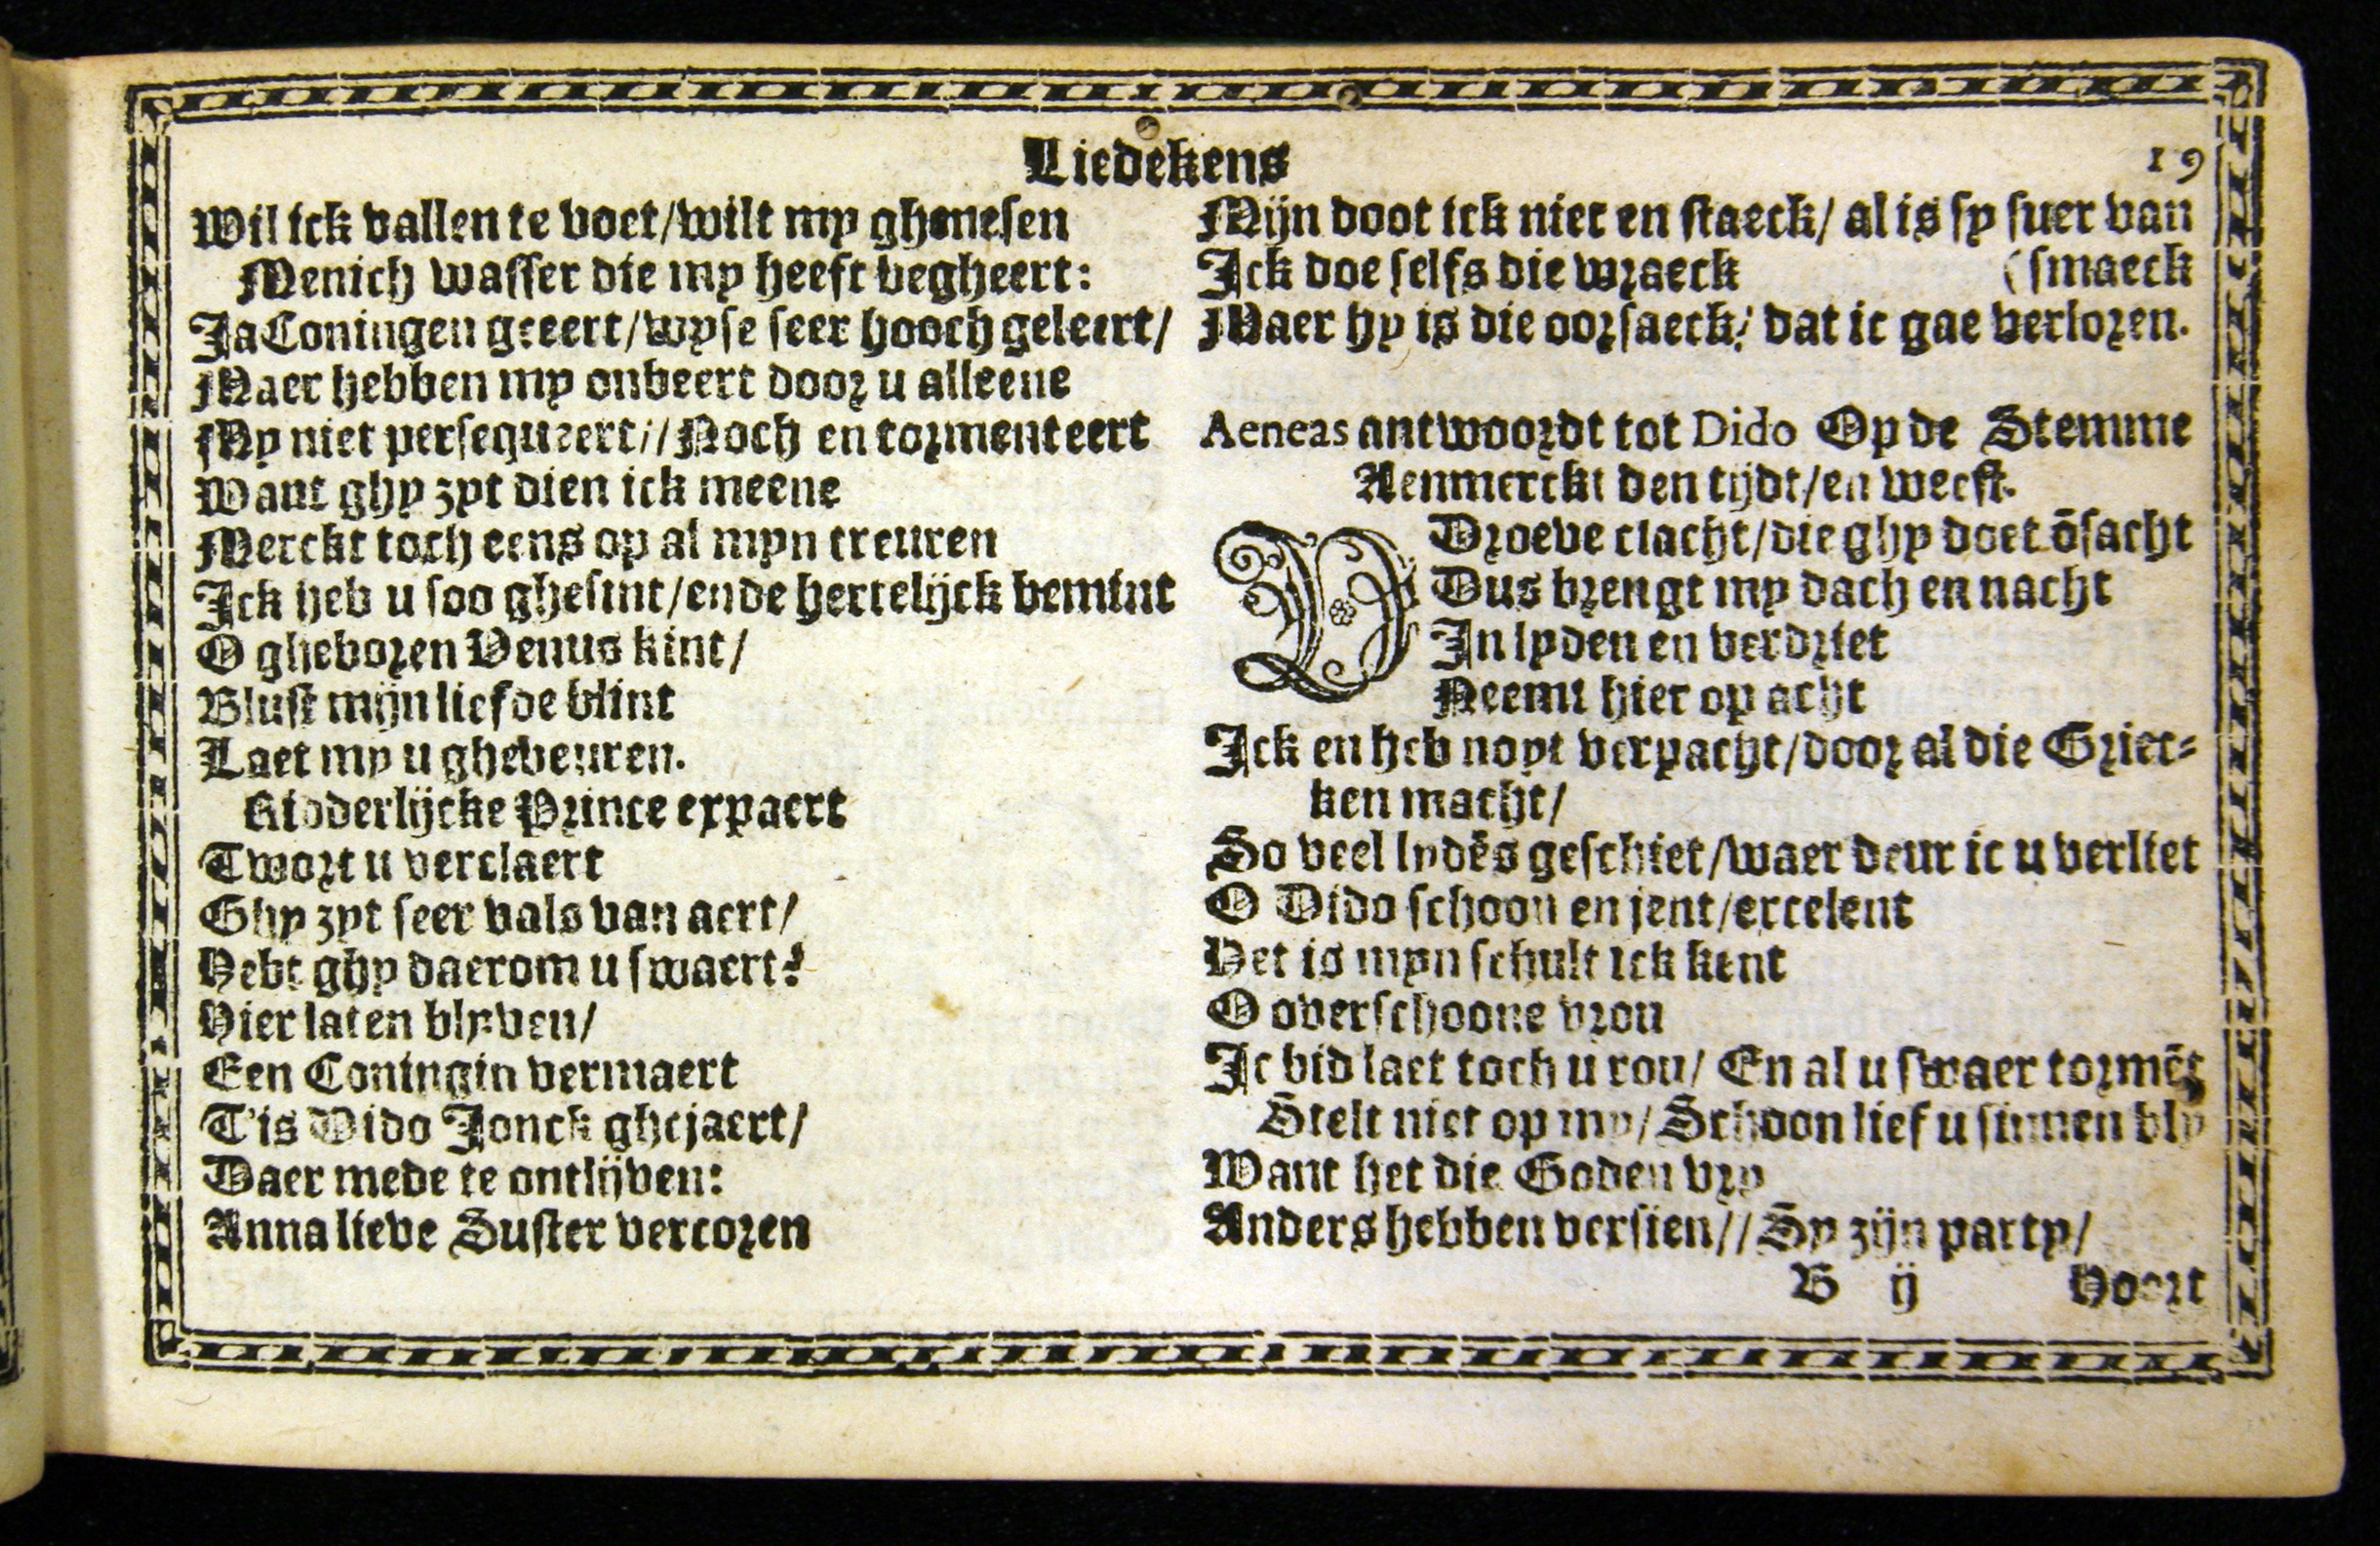 Liedekens
19
Wil ick vallen te voet/wilt my ghenesen
Menich wasser die my heeft begheert:
Ja Coningen geeert/wyse seer hooch geleert/
Maer hebben my onbeert door u alleene
My niet persequeert// Noch en tormenteert
Want ghy zyt dien ick meene
Merckt toch eens op al myn treuren
Ick heb u soo ghesint/ende hertelijck bemint
O gheboren Venus kint/
Blust mijn liefde blint
Laet my u ghebeuren.
Ridderlijcke Prince expaert
Twort u verclaert
Ghy zyt seer vals van aert/
Hebt ghy daerom u swaert?
Hier laten blyven/
Een Coningin vermaert
T'is Dido Jonck ghejaert/
Daer mede te ontlijven:
Anna lieve Suster vercoren
Mijn doot ick niet en staeck/ al is sy suer van
Ick doe selfs die wraeck (smaeck
Maer hy is die oorsaeck/ dat ic gae verloren.
Aeneas antwoordt tot Dido Op de Stemme
Aenmerckt den tijdt/en weest.
U Droeve clacht/die ghy doet ōsacht
Dus brengt my dach en nacht
In lyden en verdriet
Neemt hier op acht
Ick en heb noyt verpacht/door al die Griec-
ken macht/
So veel lydēs geschiet/waer deur ic u verliet
O Dido schoon en jent/excelent
Het is myn schult ick kent
O overschoone vrou
Ic bid laet toch u rou/ En al u swaer tormēt
Stelt niet op my/ Schoon lief u sinnen bly
Want het die Goden vry
Anders hebben versien// Sy zijn party/
B ij Hoort